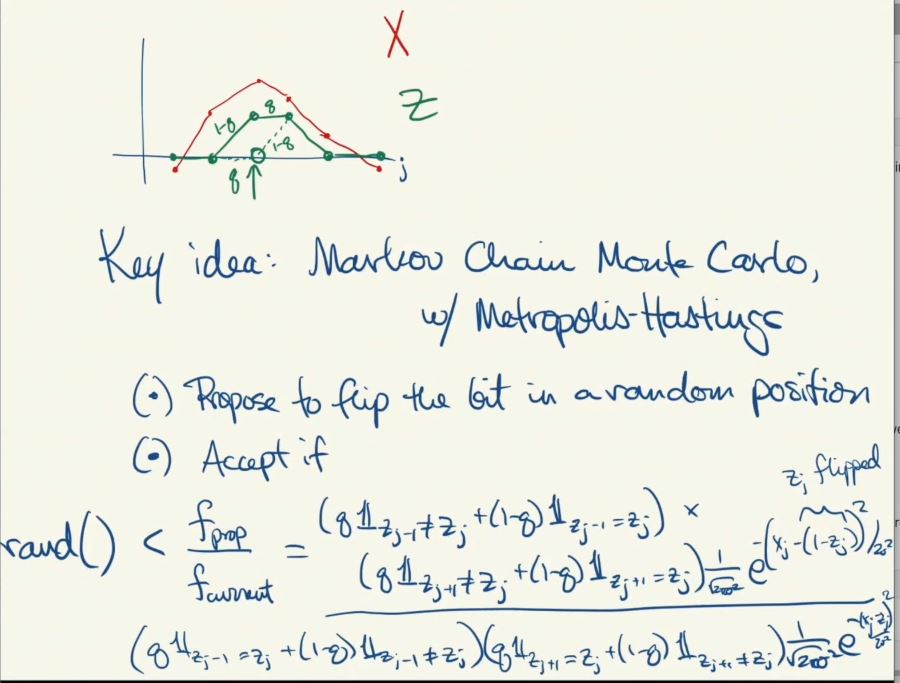 X
Z
8
1-8
1-8
8
j
Key idea: Markov Chain Monte Carlo,
w/ Metropolis-Hastings
(•) Propose to flip the bit in a random position
(•) Accept if
z_j flipped
rand() < f_prop / f_current = (8 𝟙_{z_{j-1}≠z_j} + (1-8) 𝟙_{z_{j-1}=z_j}) ×
(8 𝟙_{z_{j+1}≠z_j} + (1-8) 𝟙_{z_{j+1}=z_j}) 1/√(2πσ²) e^{-(x_j-(1-z_j))²/2σ²}
(8 𝟙_{z_{j-1}=z_j} + (1-8) 𝟙_{z_{j-1}≠z_j})(8 𝟙_{z_{j+1}=z_j} + (1-8) 𝟙_{z_{j+1}≠z_j}) 1/√(2πσ²) e^{-(x_j-z_j)²/2σ²}